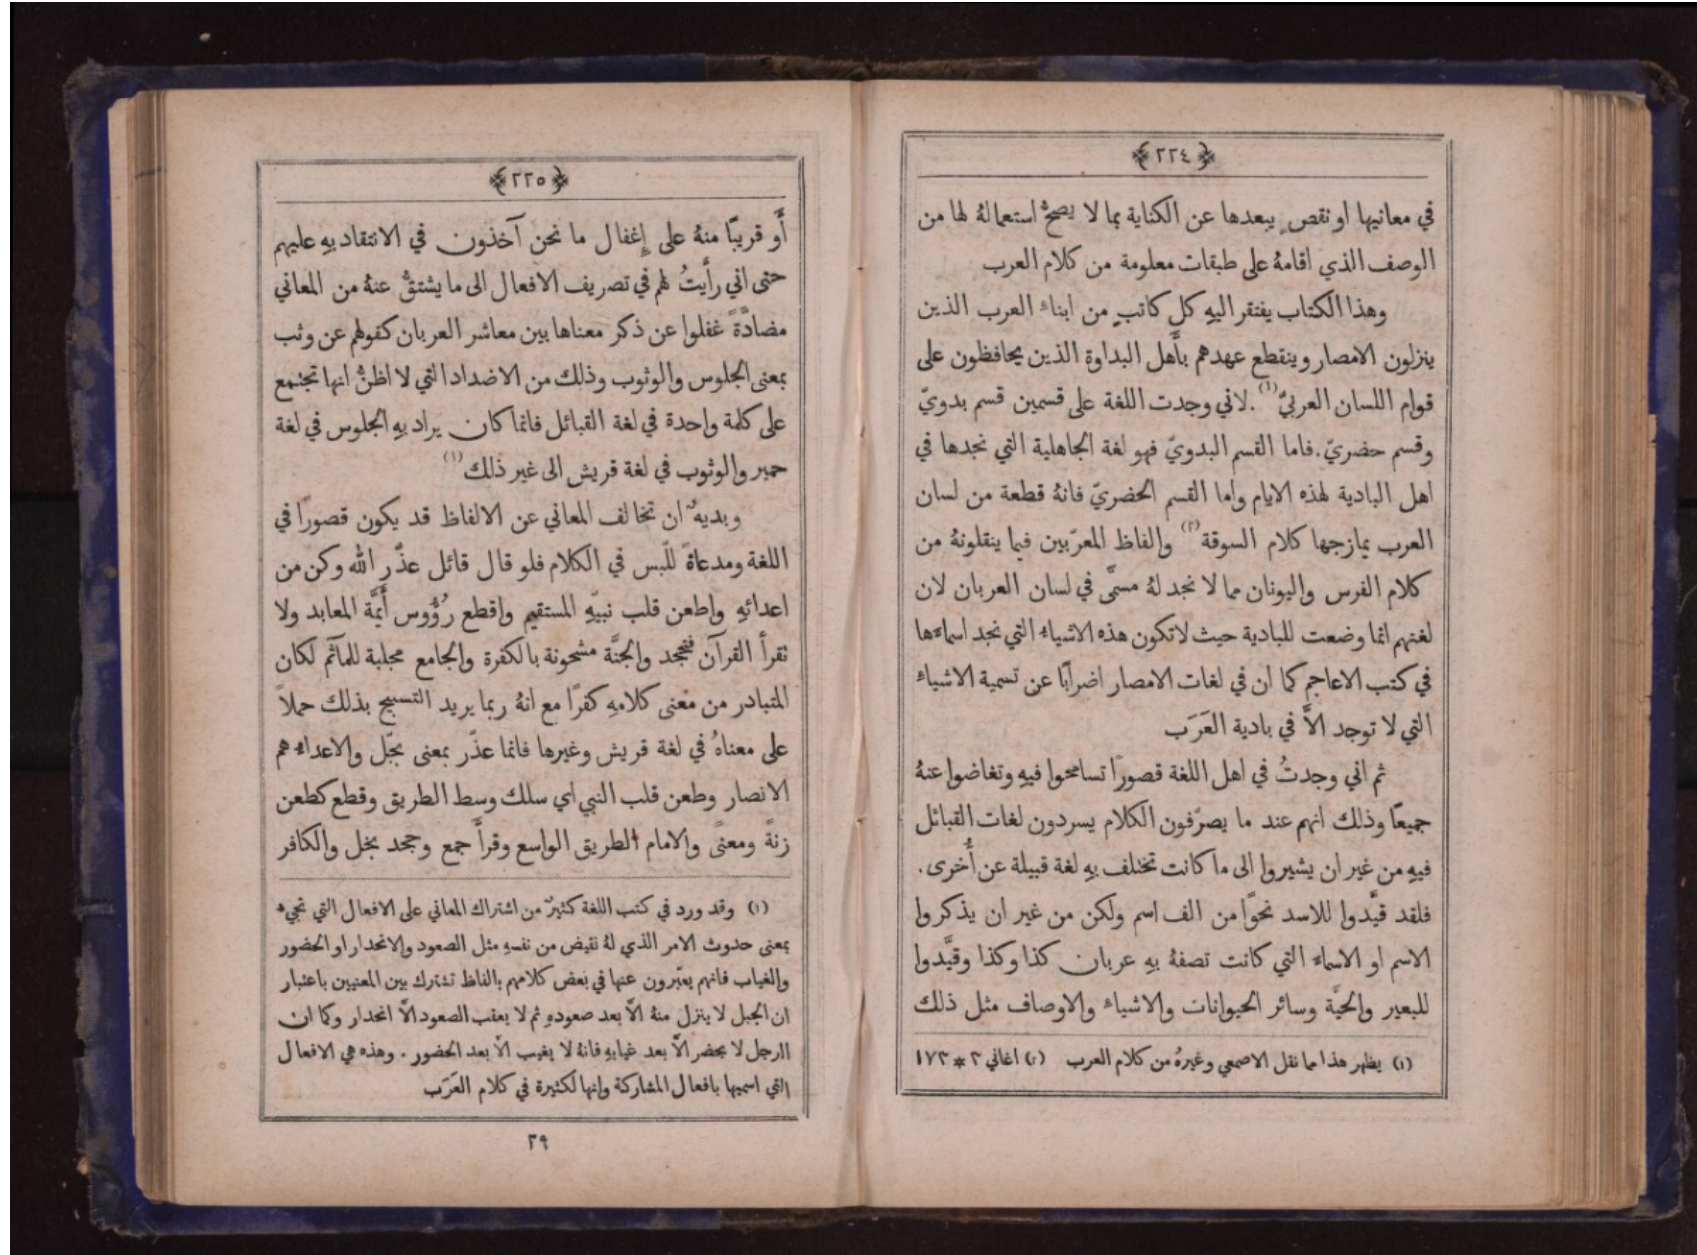 ﴿٢٢٤﴾
في معانيها او نقصٍ يبعدها عن الكناية بما لا يصحُّ استعمالهُ لها من
الوصف الذي اقامهُ على طبقات معلومة من كلام العرب
وهذا الكتاب يفتقر اليهِ كل كاتبٍ من ابناءِ العرب الذين
ينزلون الامصار وينقطع عهدهم بأهل البداوة الذين يحافظون على
قوام اللسان العربيّ(١). لاني وجدت اللغة على قسمين قسم بدويّ
وقسم حضريّ. فاما القسم البدويّ فهو لغة الجاهلية التي نجدها في
اهل البادية لهذه الايام واما القسم الحضريّ فانهُ قطعة من لسان
العرب يمازجها كلام السوقة(٢) والفاظ المعرّبين فيما ينقلونهُ من
كلام الفرس واليونان مما لا نجد لهُ مسمًّى في لسان العربان لان
لغتهم انما وضعت للبادية حيث لا تكون هذه الاشياءُ التي نجد اسماءَها
في كتب الاعاجم كما ان في لغات الامصار اضرابًا عن تسمية الاشياءِ
التي لا توجد الاَّ في بادية العَرَب
ثم اني وجدتُ في اهل اللغة قصورًا تسامحوا فيهِ وتغاضوا عنهُ
جميعًا وذلك انهم عند ما يصرّفون الكلام يسردون لغات القبائل
فيهِ من غير ان يشيروا الى ما كانت تختلف بهِ لغة قبيلة عن أُخرى.
فلقد قيَّدوا للاسد نحوًا من الف اسم ولكن من غير ان يذكروا
الاسم او الاسماءَ التي كانت تصفهُ بهِ عربان كذا وكذا وقيَّدوا
للبعير والحيَّة وسائر الحيوانات والاشياءِ والاوصاف مثل ذلك
(١) يظهر هذا مما نقل الاصمعي وغيرهُ من كلام العرب (٢) اغاني ٢ * ١٧٣
﴿٢٢٥﴾
أَو قريبًا منهُ على إِغفال ما نحن آخذون في الانتقاد بهِ عليهم
حتى اني رأَيتُ لهم في تصريف الافعال الى ما يشتقُّ عنهُ من المعاني
مضادَّةً غفلوا عن ذكر معناها بين معاشر العربان كقولهم عن وثب
بمعنى الجلوس والوثوب وذلك من الاضداد التي لا اظنُّ انها تجتمع
على كلمة واحدة في لغة القبائل فانما كان يراد بهِ الجلوس في لغة
حمير والوثوب في لغة قريش الى غير ذلك(١)
وبديهٌ ان تخالف المعاني عن الالفاظ قد يكون قصورًا في
اللغة ومدعاةً للَّبس في الكلام فلو قال قائل عذِّر الله وكن من
اعدائهِ واطعن قلب نبيّهِ المستقيم واقطع رُؤُوس أَيمَّة المعابد ولا
تقرأ القرآن فتجحد والجنَّة مشحونة بالكفرة والجامع مجلبة للمآثم لكان
المتبادر من معنى كلامهِ كفرًا مع انهُ ربما يريد التسبيح بذلك حملاً
على معناهُ في لغة قريش وغيرها فانما عذّر بمعنى بجّل والاعداءُ هم
الانصار وطعن قلب النبي اي سلك وسط الطريق وقطع كطعن
زنةً ومعنًى والامام الطريق الواسع وقرأَ جمع وجحد بخل والكافر
(١) وقد ورد في كتب اللغة كثيرٌ من اشتراك المعاني على الافعال التي تجيءُ
بمعنى حدوث الامر الذي لهُ نقيض من نفسهِ مثل الصعود والانحدار او الحضور
والغياب فانهم يعبّرون عنها في بعض كلامهم بالفاظ تشترك بين المعنيين باعتبار
ان الجبل لا ينزل منهُ الاَّ بعد صعودهِ ثم لا يعقب الصعود الاَّ انحدار وكما ان
الرجل لا يحضر الاَّ بعد غيابهِ فانهُ لا يغيب الاَّ بعد الحضور. وهذه هي الافعال
التي اسميها بافعال المشاركة وانها لكثيرة في كلام العَرَب
٢٩